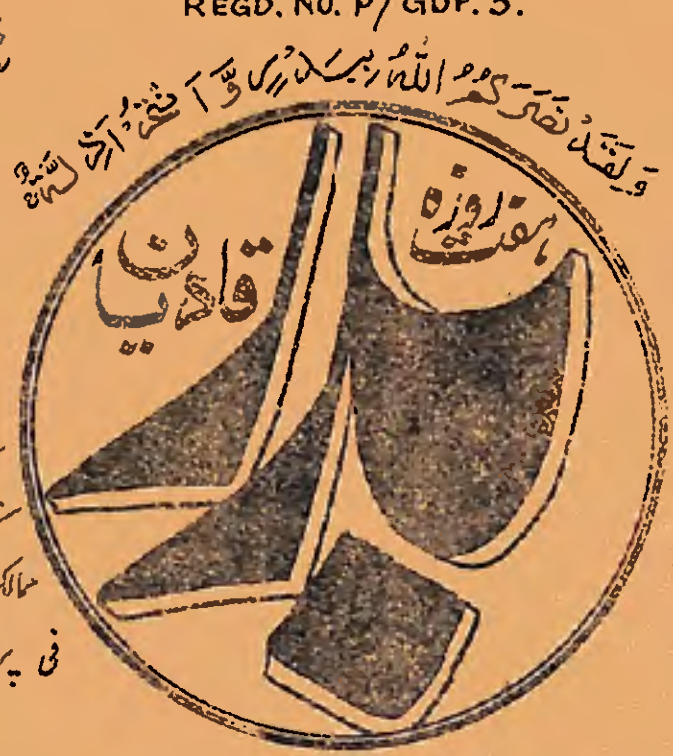 REGD. NO. P/ GDP. 3.
وَلَقَدْ نَصَرَكُمُ اللّٰهُ بِبَدْرٍ وَّاَنْتُمْ اَذِلَّةٌ
ہفت روزہ
بدر
قادیان
فی پر